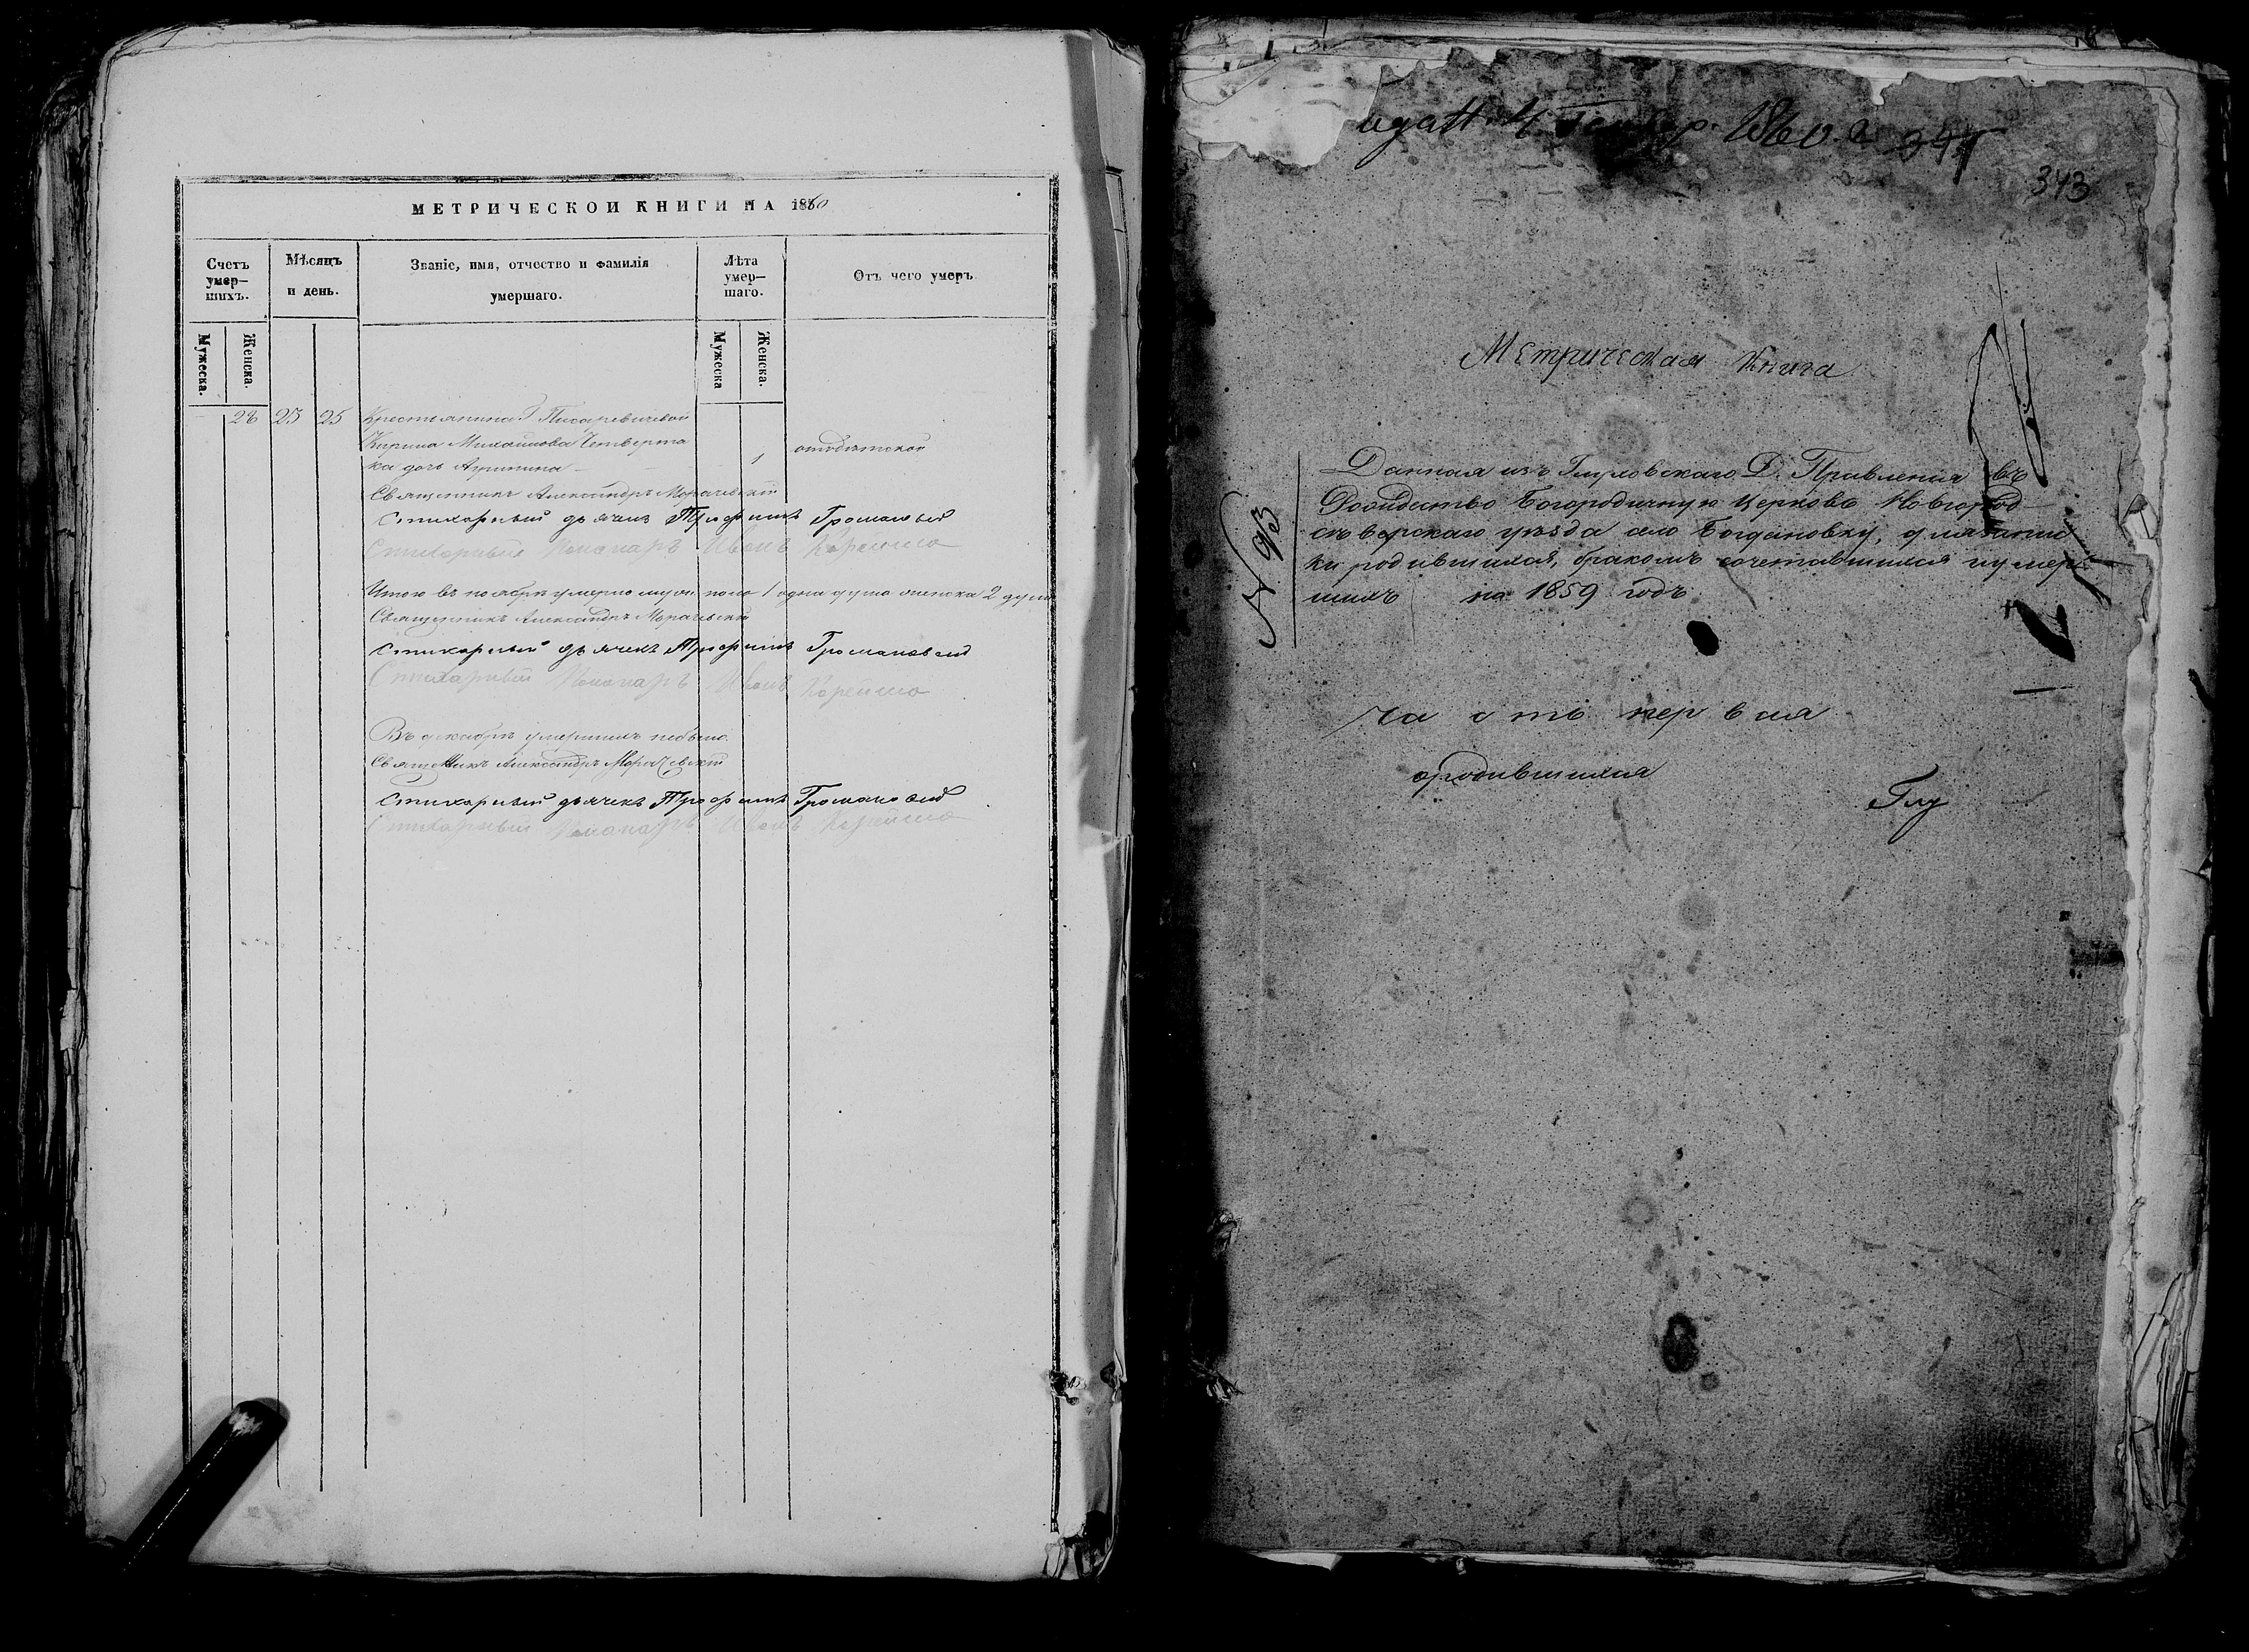 МЕТРИЧЕСКОЙ КНИГИ НА 1860
Счетъ умер-шихъ.
Мѣсяцъ и день.
Званіе, имя, отчество и фамилія умершаго.
Лѣта умер-шаго.
Отъ чего умеръ
Мужеска.
Женска.
Мужеска
Женска.
28 23 25 Крестьянина Г Писаревичевой
Кирила Михайлова Четверта
ка дочь Агрипина 1
Священникъ Александръ Морачевскій
Стихарный дьячекъ Трофимъ Громаковскій
Стихарный Пономарь Иванъ Корейша
Итого въ ноябрѣ умерло муж. пола 1 одна душа женска 2 души
Священникъ Александръ Морачевскій
Стихарный дьячекъ Трофимъ Громаковскій
Стихарный Пономарь Иванъ Корейша
Въ декабрѣ умершихъ небыло.
Священникъ Александръ Морачевскій
Стихарный дьячекъ Трофимъ Громаковскій
Стихарный Пономарь Иванъ Корейша
4 Генвар. 1860. г.
343
Метрическая Книга
Данная изъ Глуховскаго Д. Правленія въ
Рождество Богородичную Церковь Новгород
сѣверскаго уѣзда село Богдановку, для записи
ки родившихся, бракомъ сочетавшихся и умер
шихъ на 1859 годъ.
№ 93
Часть первая
о родившихся
Глу